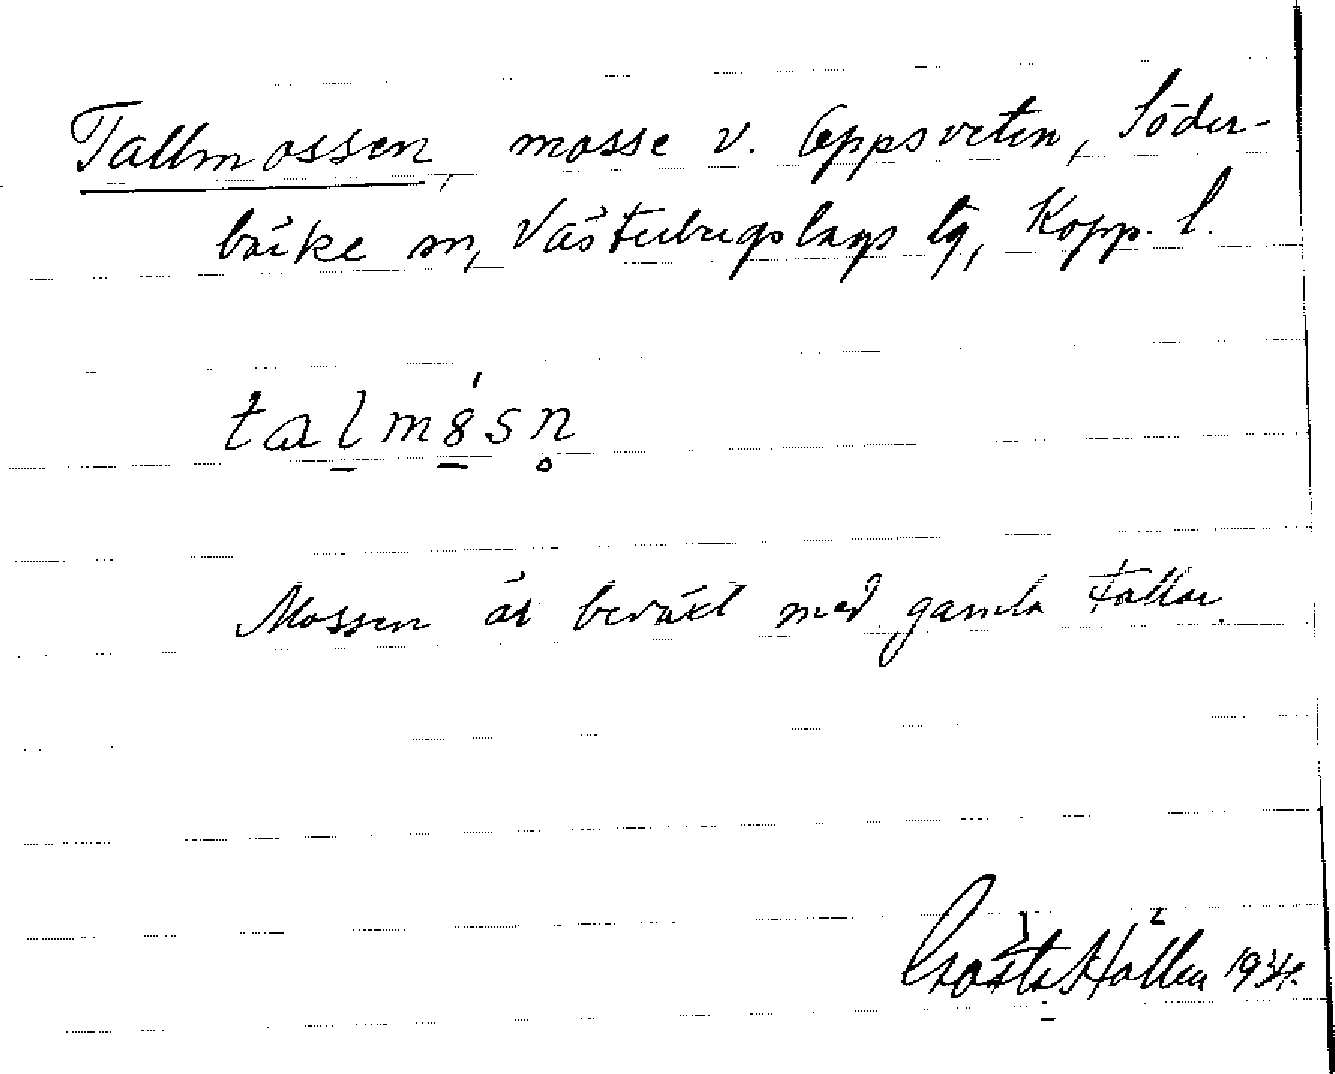 Tallmossen, mosse v. Oppsveten, Söder-
bärke sn, Västerbergslags tg, Kopp. l.
talmósn̥
Mossen är beväxt med gamla tallar.
Hällen 1934.